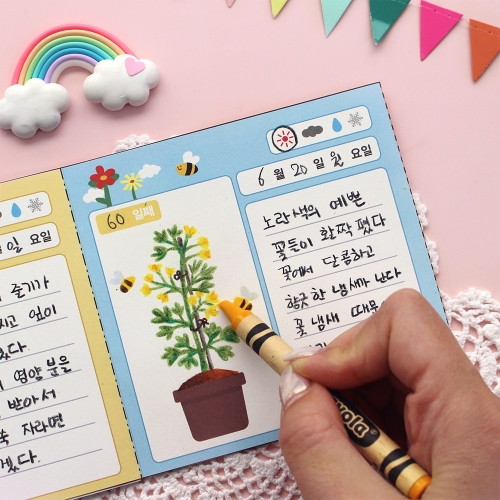 일 요일
줄기가
지고 잎이
영양분을
받아서
쑥 자라면
겠다.
60 일째
6 월 20 일 월 요일
노란색의 예쁜
꽃들이 활짝 폈다
꽃에서 달콤하고
향긋한 냄새가 난다
꽃 냄새 때문